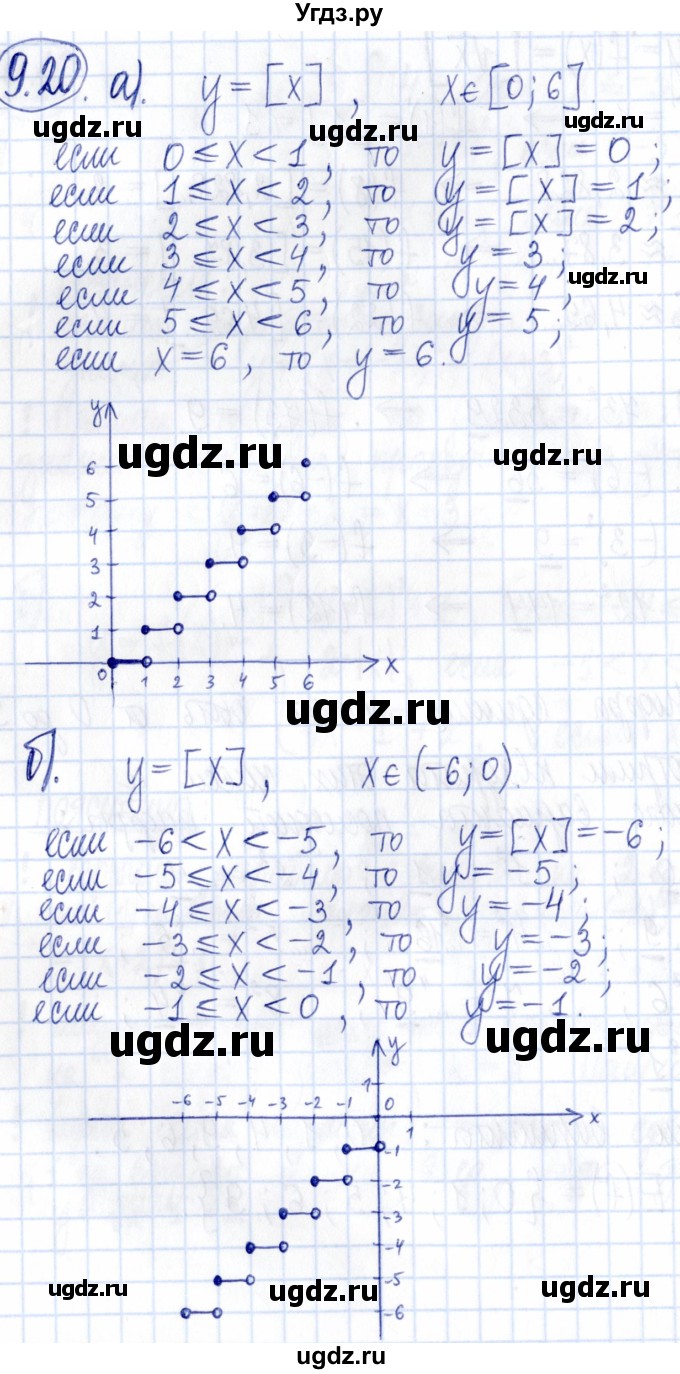 Угдз.ру
9.20. а). y = [x], x∈[0;6].
ugdz.ru ugdz.ru ugdz.ru
если 0 ≤ x < 1, то y = [x] = 0;
если 1 ≤ x < 2, то y = [x] = 1;
если 2 ≤ x < 3, то y = [x] = 2;
если 3 ≤ x < 4, то y = 3;
ugdz.ru
если 4 ≤ x < 5, то y = 4;
если 5 ≤ x < 6, то y = 5;
если x = 6, то y = 6.
y
ugdz.ru ugdz.ru
6
5
4
3
2
1
0 1 2 3 4 5 6 x
ugdz.ru
б). y = [x], x∈(-6;0).
если -6 < x < -5, то y = [x] = -6;
если -5 ≤ x < -4, то y = -5;
если -4 ≤ x < -3, то y = -4;
если -3 ≤ x < -2, то y = -3;
если -2 ≤ x < -1, то y = -2;
если -1 ≤ x < 0, то y = -1.
ugdz.ru ugdz.ru
y
1
-6 -5 -4 -3 -2 -1 0 x
1
-1
-2
-3
-4
-5
ugdz.ru ugdz.ru ugdz.ru
-6
ugdz.ru